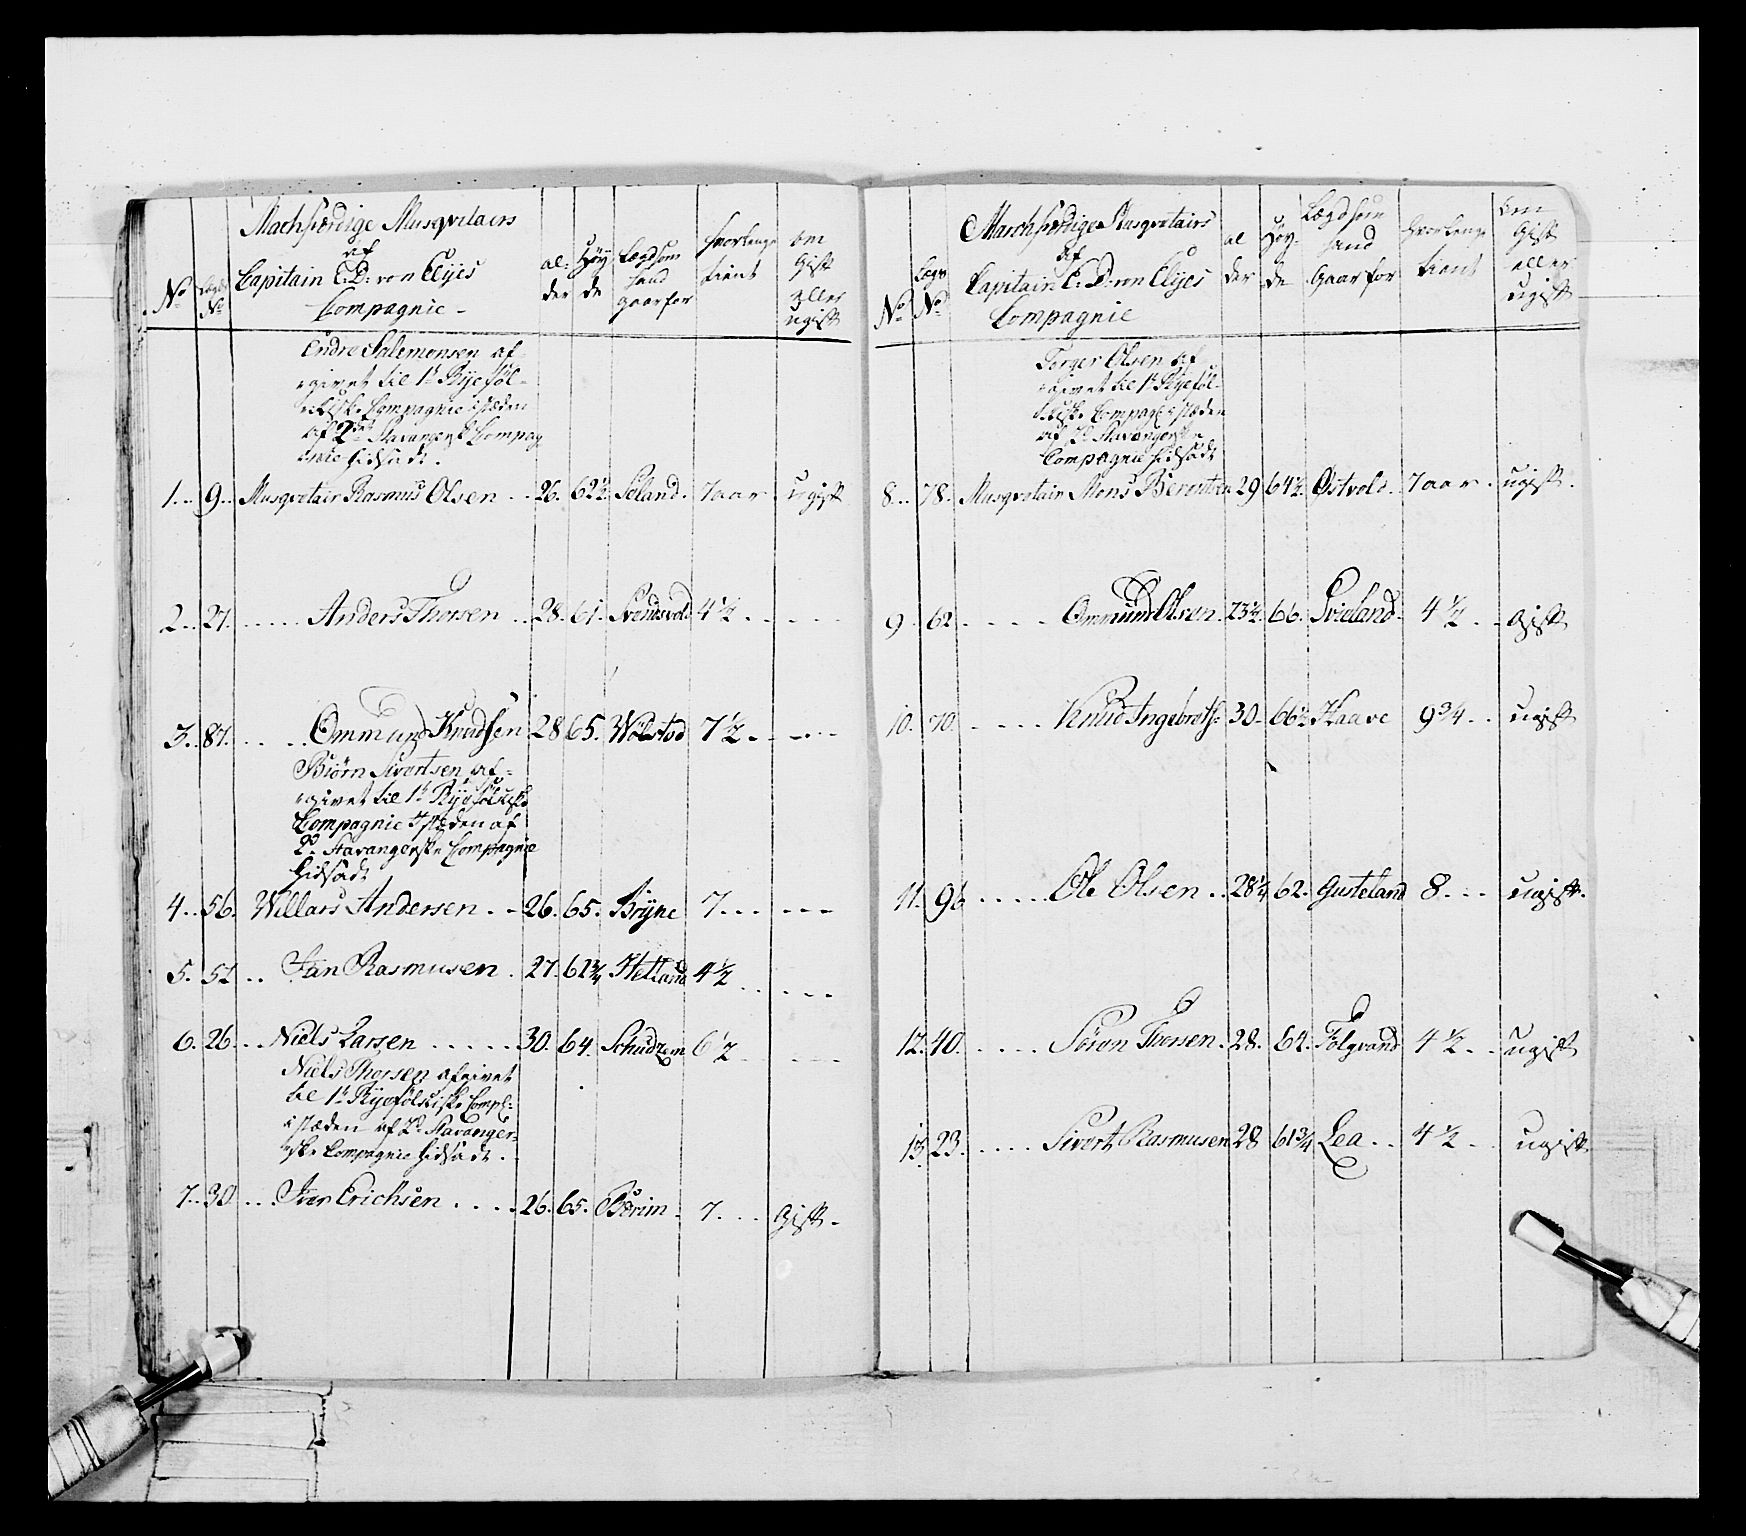 Machfærdige Musqvitairs
af
Capitain C: D: von Elyes
Compagnie -
No
Lægds No
al: der
Høy de
Lægd som hand gaar for
hvorlænge tient
om Gift eller ugift
Endre Salemonsen af-
givet til 1t Ryeføl-
kiske Compagnie i stæden
af 2det Stavangerske Compag
nie hidsadt.
1.. 9.. Musqvetair Rasmus Olsen .. 26. 62½ Seland. 7 aar ugift
2.. 27. ..... Anders Thorsen .. 28. 61. Svendsvold 4½ - - - -
3.. 87. .... Ommund Knudsen 28 65. Wolstod 7½ - - - -
Biørn Sivertsen af-
givet til 1t Ryefølkiske
Compagnie i stæden af
2d Stavangerske Compagnie
hidsadt
4.. 56. Willars Andersen. .. 26. 65. Bryne 7... - - -
5. 57 .. Jan Rasmusen . 27. 61¾ Hetland 4½ .. - - -
6. 26. .. Niels Larsen ..... 30. 64. 6½ - - -
Niels Thorsen afgivet
til 1t Ryefølkiske Compe:
i stæden af 2d Stavanger-
ske Compagnie hidsadt.
7.. 30 .. Iver Erichsen .... 26. 65. Børim - 7... Gift.
Marchfærdige Musqvetairs
af
Capitain C: D: von Elyes
Compagnie
No
Lægs No
al der
Høy- de
Lægd som hand Gaar for
hvorlenge tient
om Gift eller ugift
Torger Olsen af-
givet til 1t Ryeføl-
kiske Compag i stæden
af 2d Stavangerske
Compagnie hidsadt
8... 78. Musqvetair Mons Berentsen 29 64½ Ostvold. 7 aar. ugift.
9. 62. .... Ommund Olsen. 23½. 66. Svieland. 4½ .. gift
10. 70. .... Knud Ingebretsen 30. 66½ Haave 9¾ .. ugift
11. 96 ..... Ole Olsen .. 28¼ 62. Gusteland 8... ugift.
12. 40. .... Søren Iversen. 28. 64. Folgvand 4½ .. ugift
13. 23. .... Sivert Rasmusen 28 61¾ Lea .. 4½ .. ugift